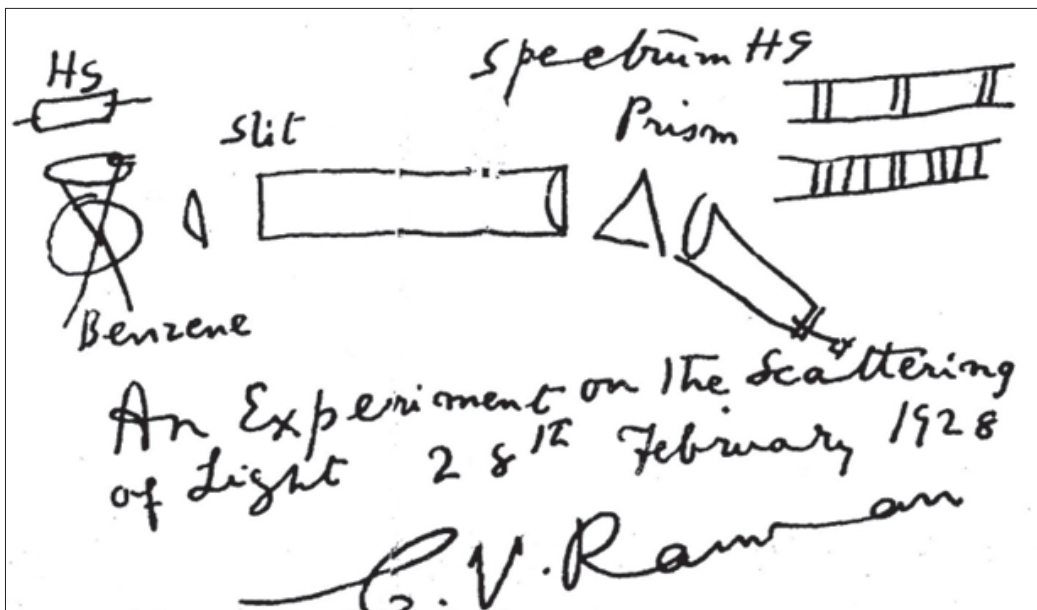 HS
Spectrum HS
Slit
Prism
Benzene
An Experiment on The Scattering
of Light 28th February 1928
C.V. Raman